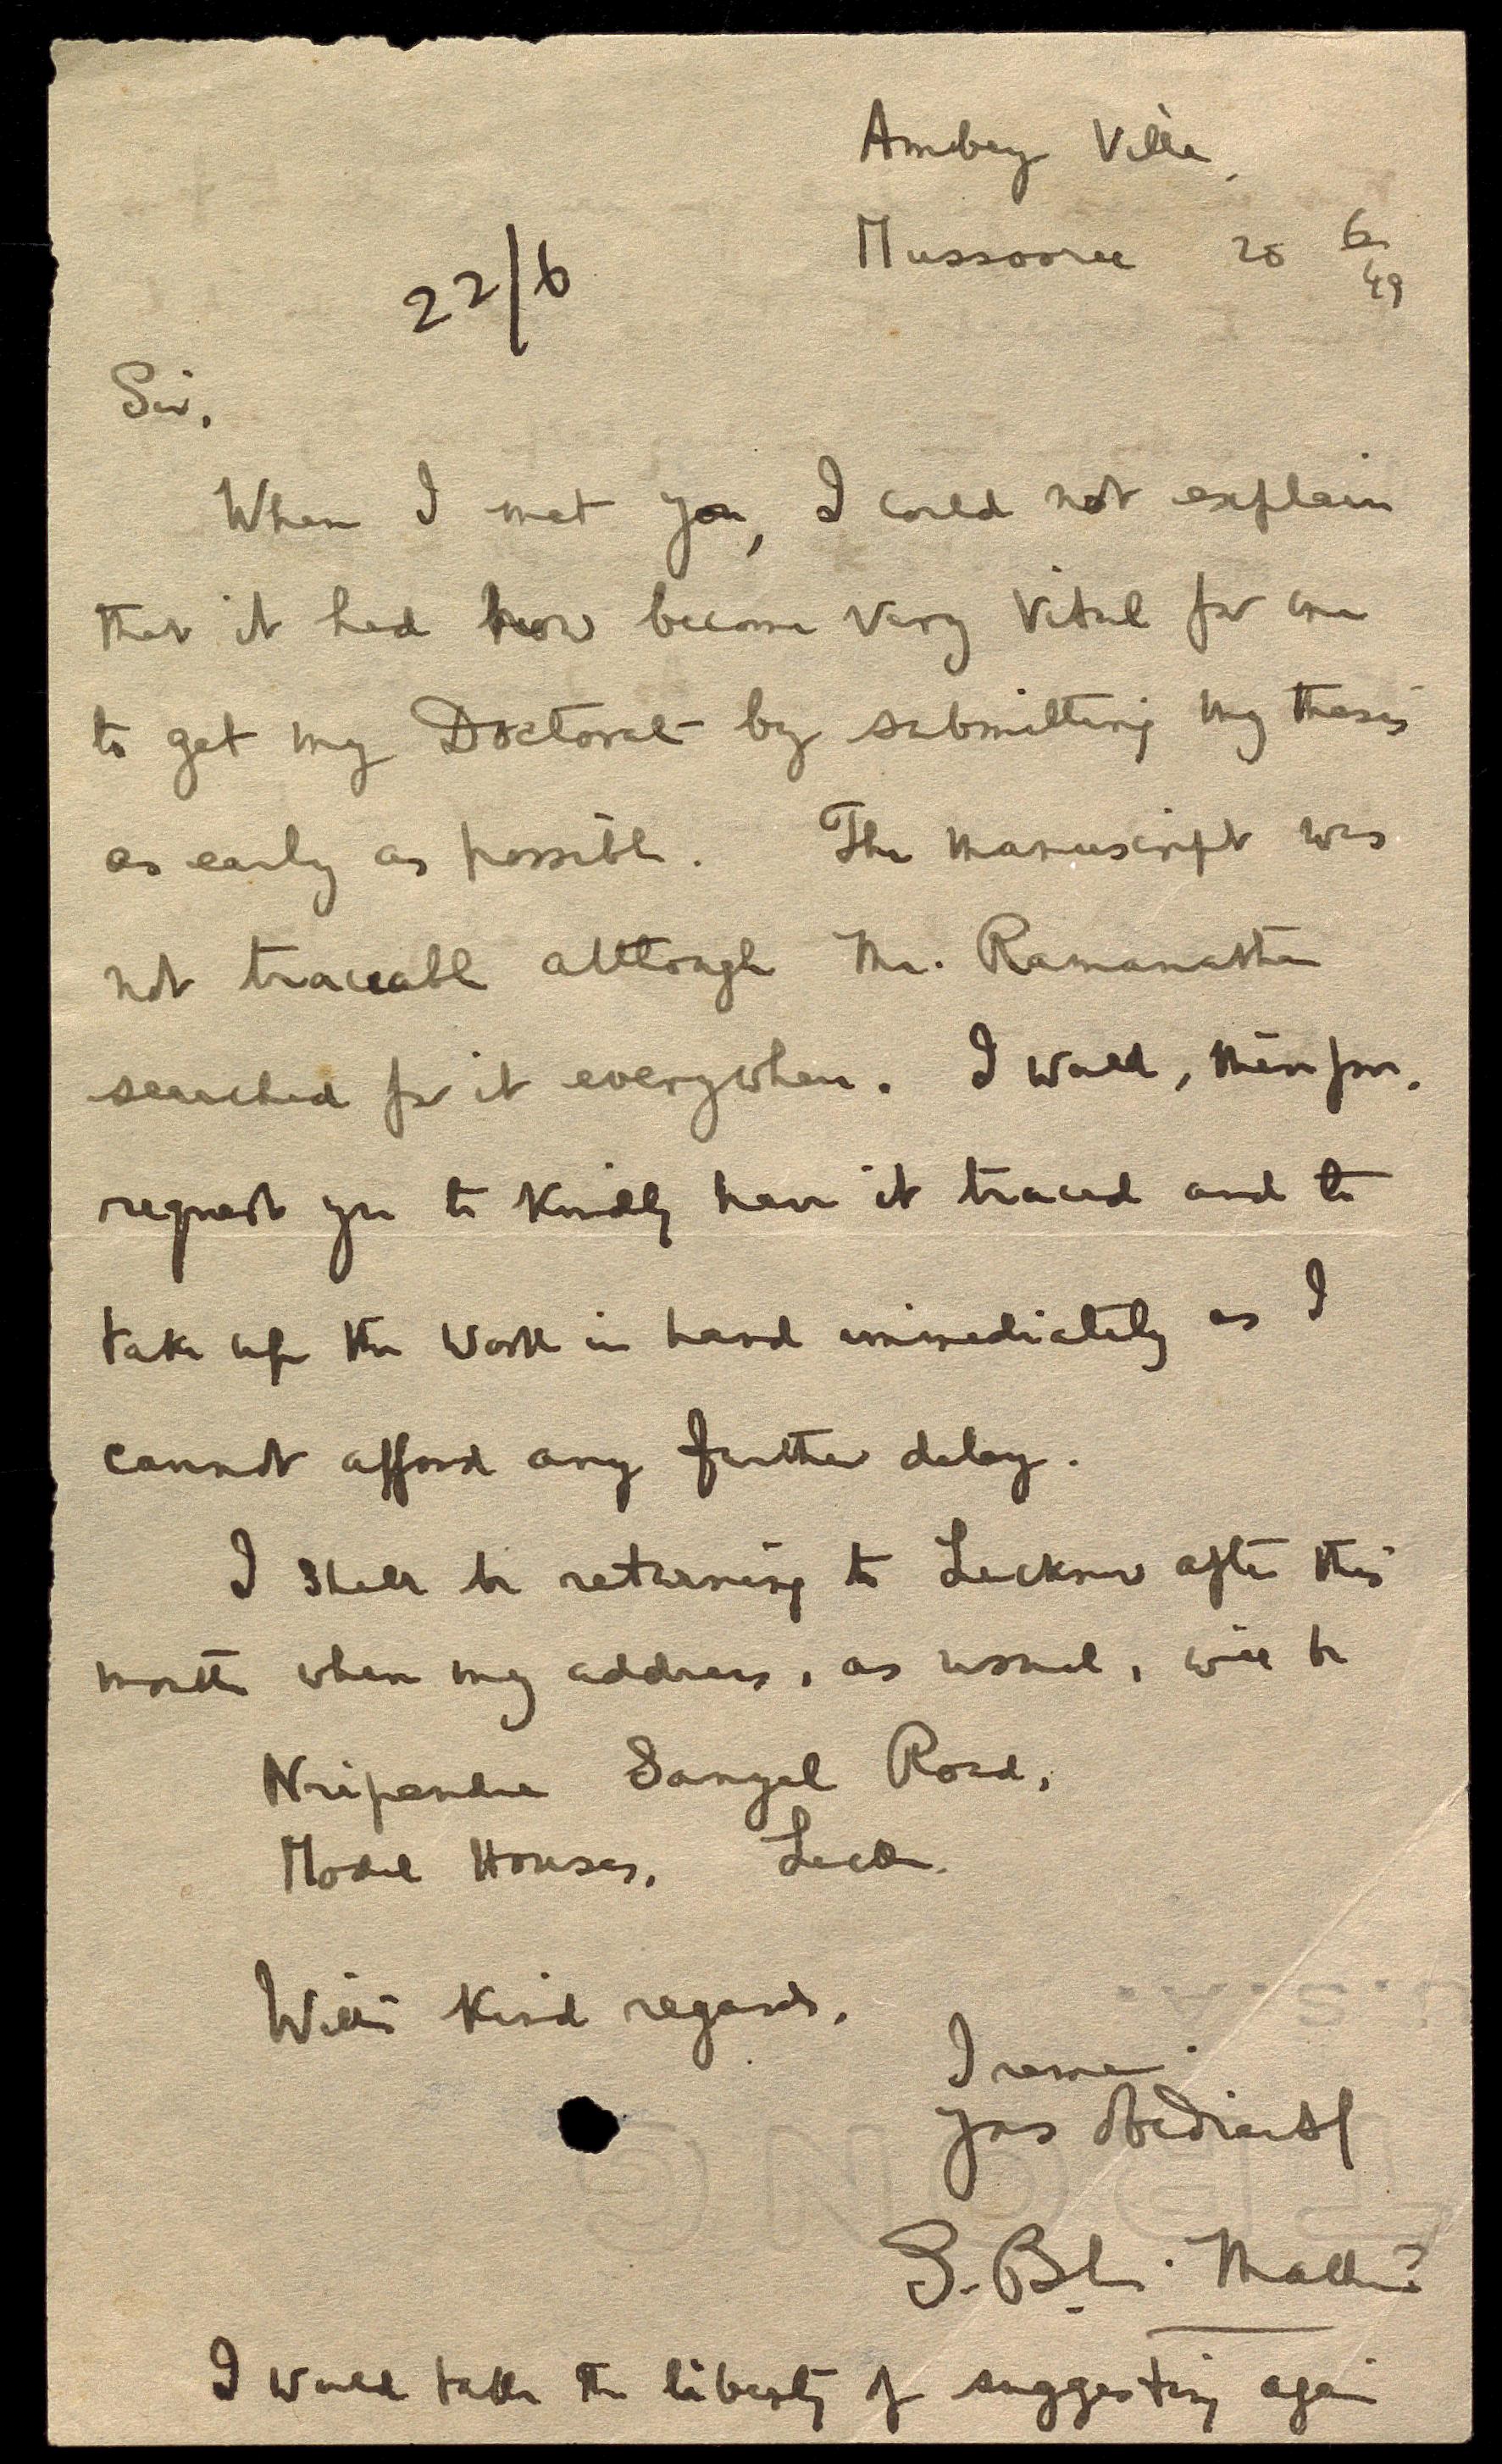 Ambey Villa,
Mussoorie 20 6/49
22/6
Sir,
When I met you, I could not explain
that it had now become very vital for me
to get my Doctorate by submitting my thesis
as early as possible. The manuscript was
not traceable although Mr. Ramanathan
searched for it everywhere. I would, therefore,
request you to kindly have it traced and to
take up the work in hand immediately as I
cannot afford any further delay.
I shall be returning to Lucknow after this
month when my address, as usual, will be
Nripendra Sanyal Road,
Model Houses, Luck
With kind regards,
I remain
yours obediently
S. Bh. Mathur
I would take the liberty of suggesting again